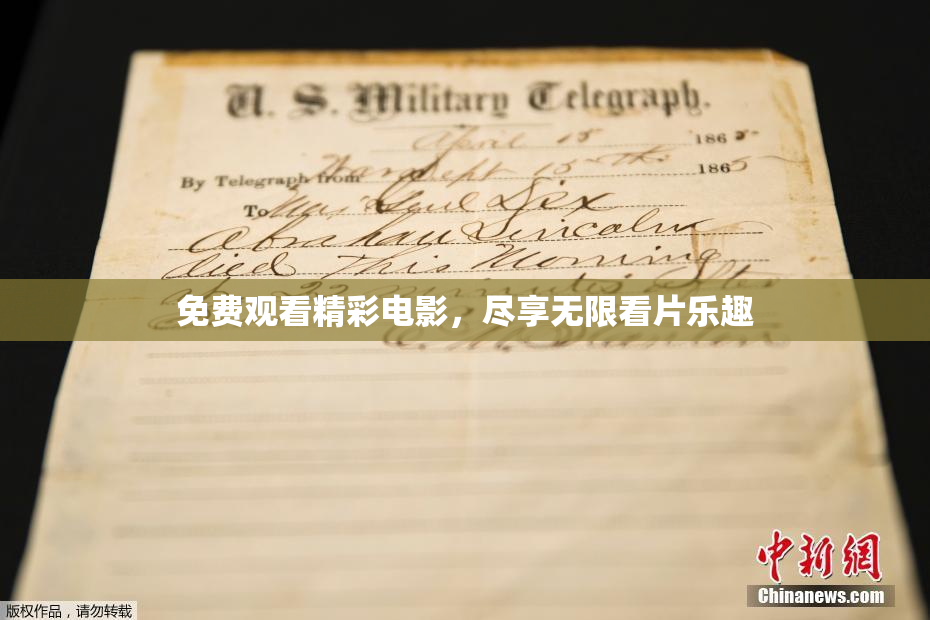 U. S. Military Telegraph.
April 15 1865.
By Telegraph from War Dept 15th 1865
To Maj Genl Dix
Abraham Lincoln
died This Morning
at 22 minutes after
E. M. Stanton
免费观看精彩电影，尽享无限看片乐趣
中新網
Chinanews.com
版权作品，请勿转载